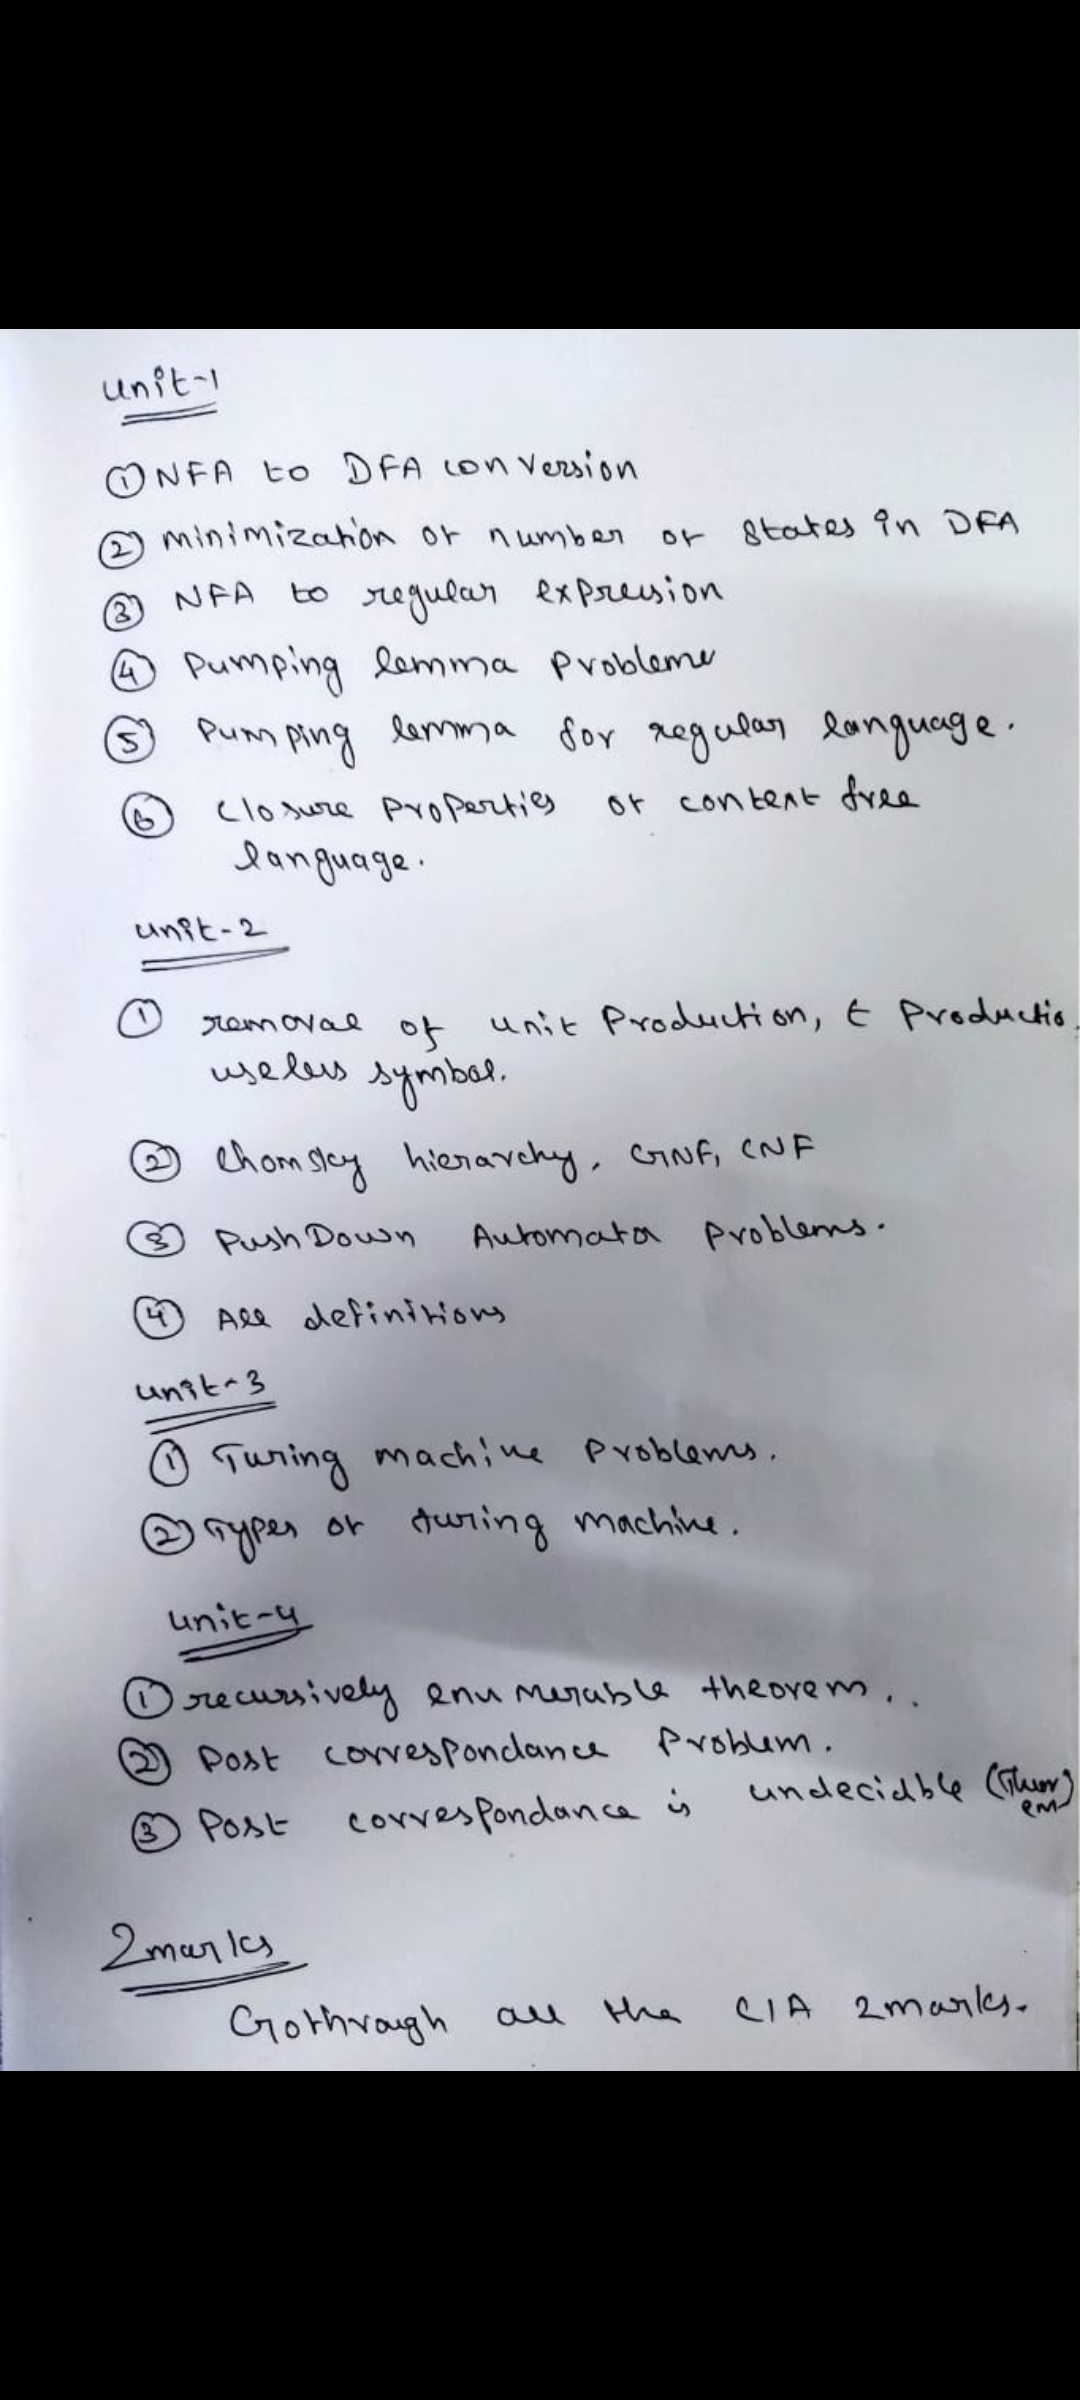 Unit-1
① NFA to DFA conversion
② Minimization of number of states in DFA
③ NFA to regular expression
④ Pumping lemma Problems
⑤ Pumping lemma for regular language.
⑥ Closure Properties of context free
language.
Unit-2
① removal of unit Production, ε Productio
useless symbol.
② Chomsky hierarchy, GNF, CNF
③ PushDown Automata Problems.
④ All definitions
Unit-3
① Turing machine Problems.
② Types of turing machine.
Unit-4
① recursively enumerable theorem..
② Post correspondance Problem.
③ Post correspondance is undecidble (Theor
em)
2marks
Gothrough all the CIA 2marks.